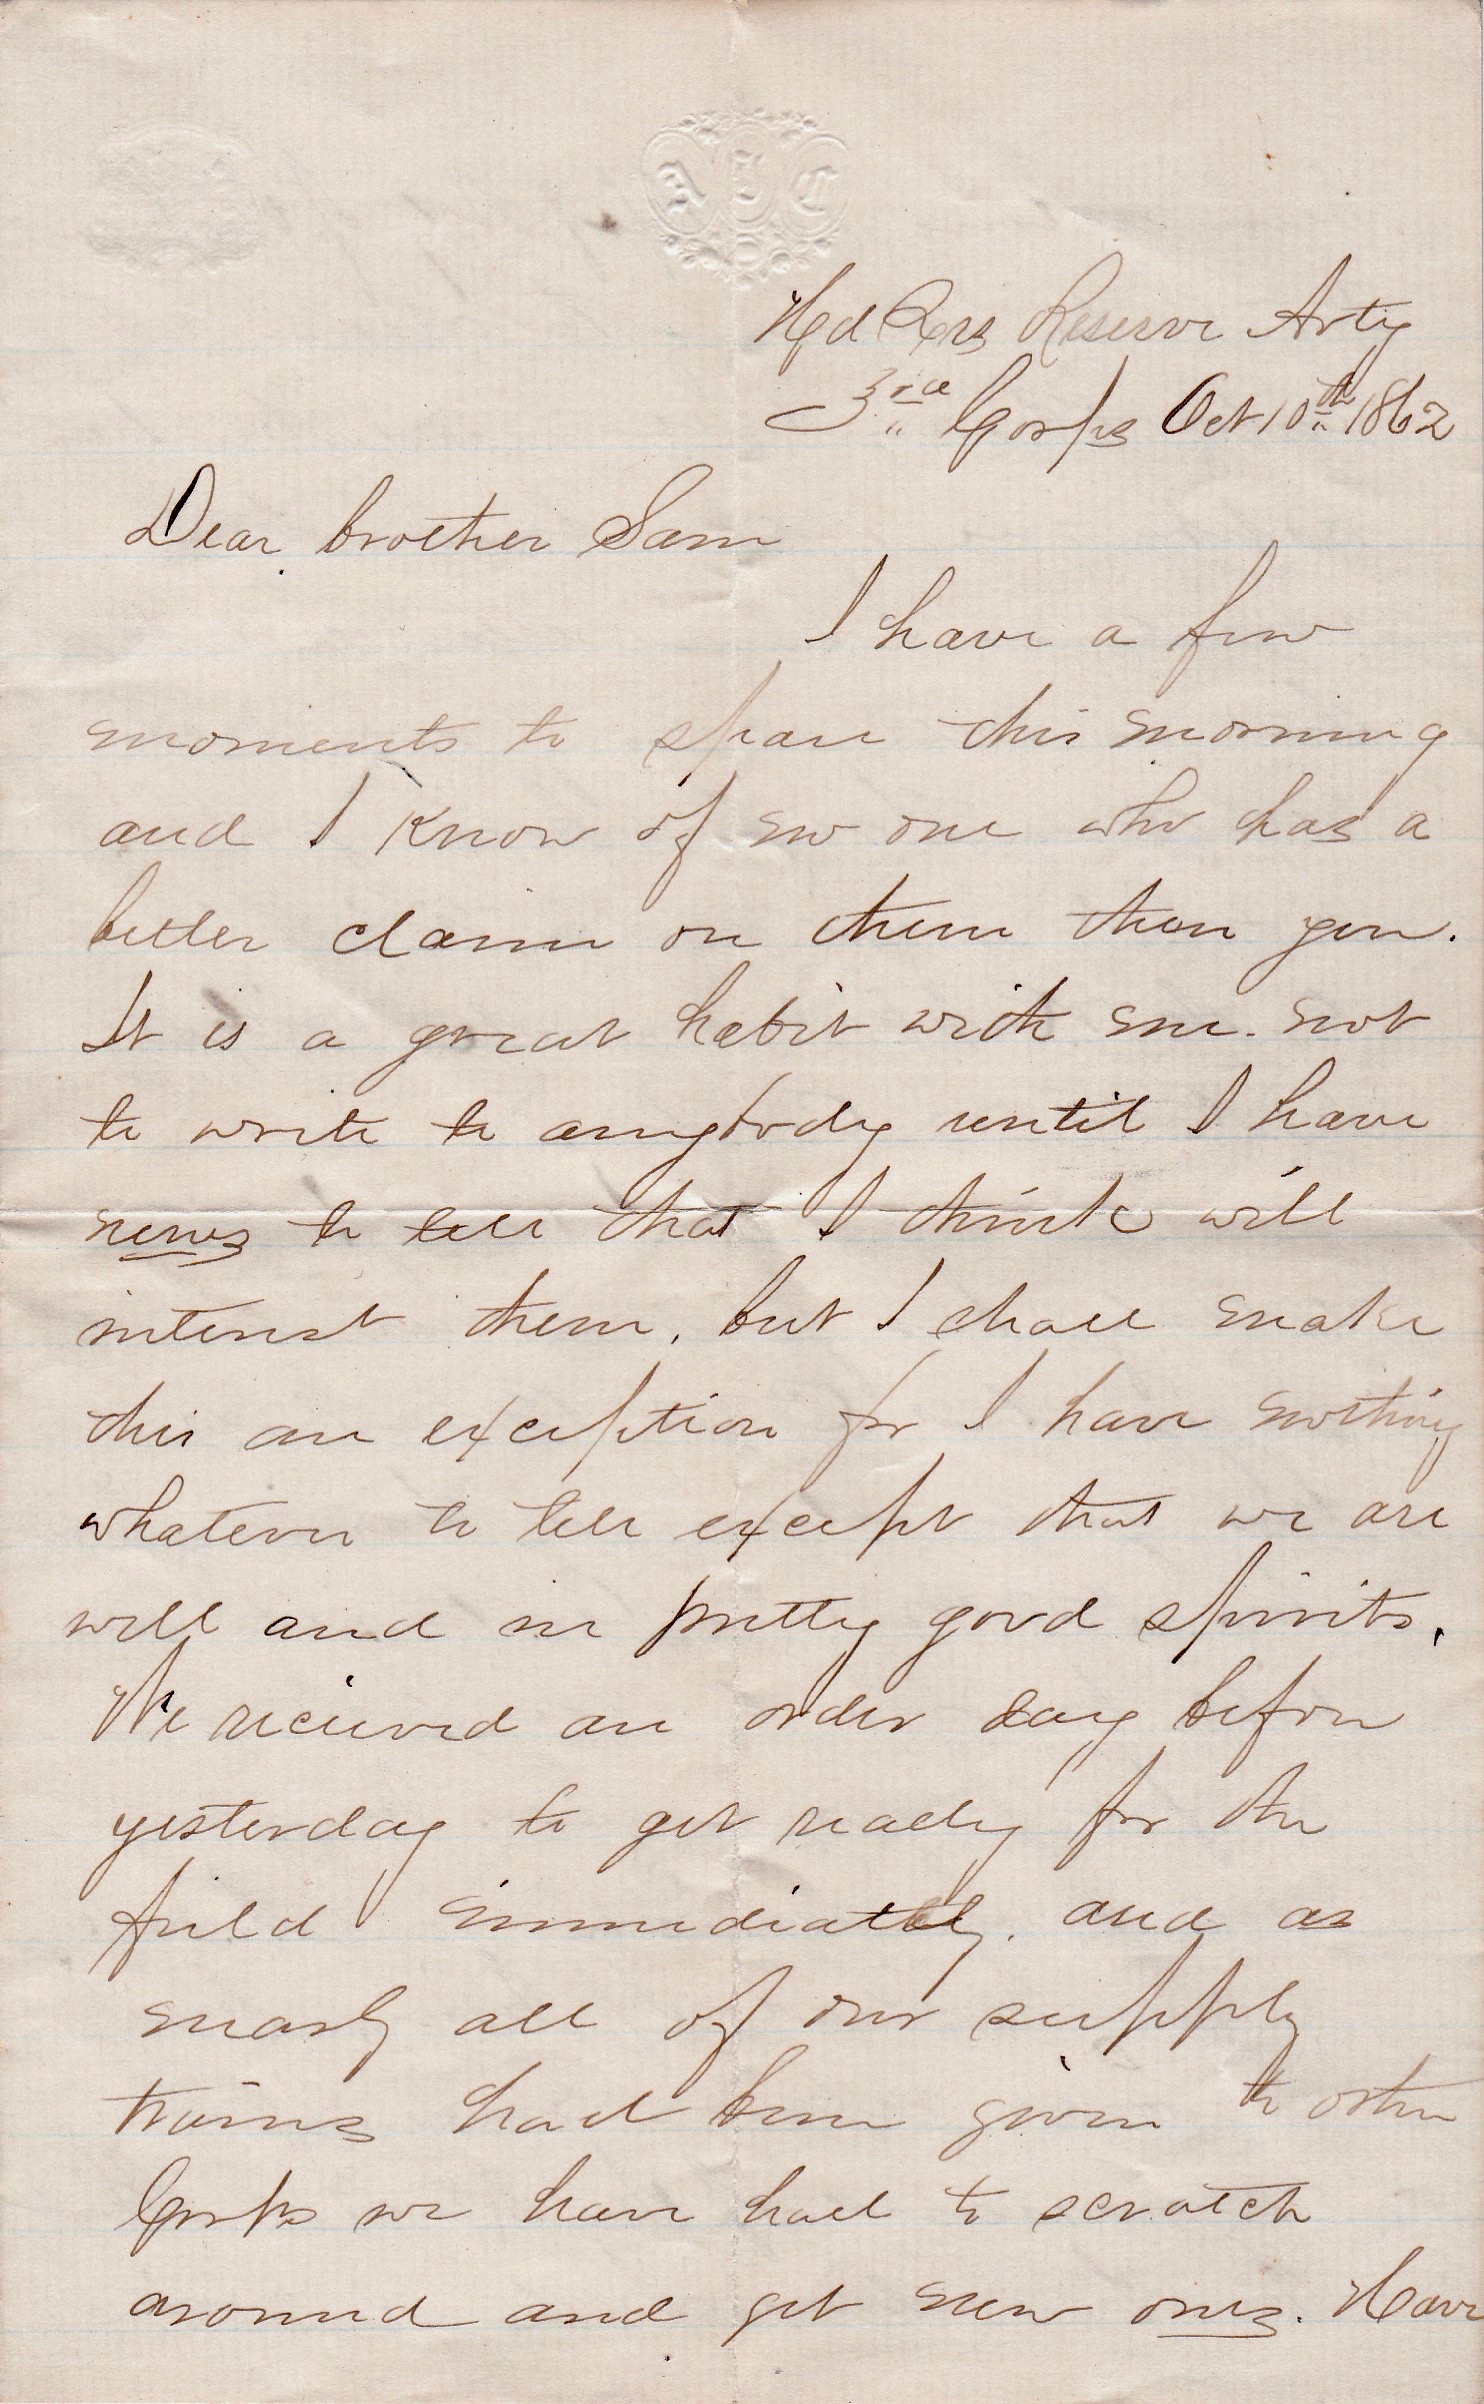 A B C
Hd Qrs Reserve Arty
3rd Corps Oct 10th 1862
Dear brother Sam
I have a few
moments to spare this morning
and I know of no one who has a
better claim on them than you.
It is a great habit with me. not
to write to anybody until I have
news to tell that I think will
interest them. but I shall make
this an exception for I have nothing
whatever to tell except that we are
well and in pretty good spirits.
We recieved an order day before
yesterday to get ready for the
field immediately. and as
nearly all of our supply
trains had been given to other
Corps we have had to scratch
around and get new ones. Have